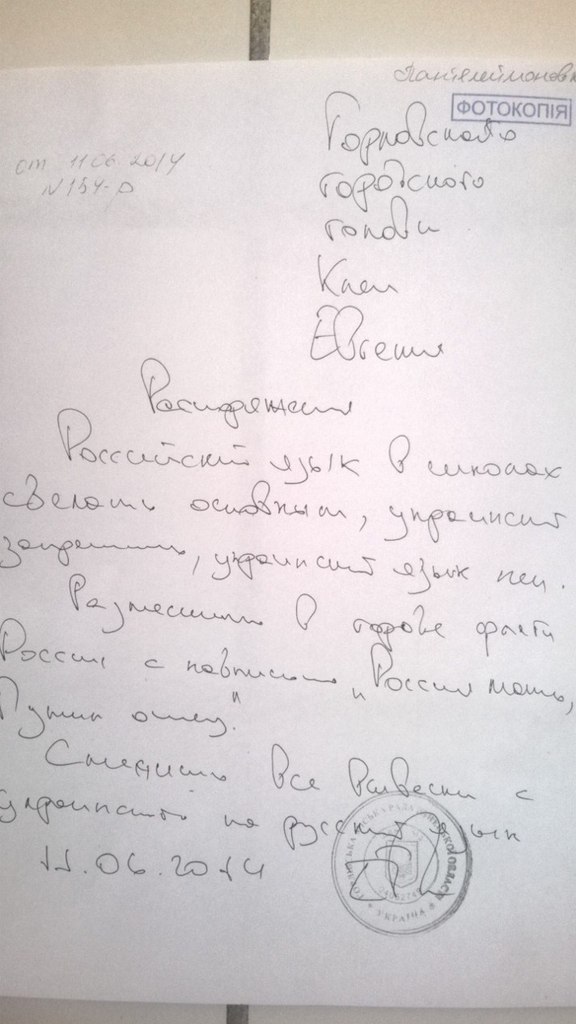 Пантелеймоновк
ФОТОКОПІЯ
от 11 06. 2014
N 154-р
городского
голови
Клеп
Евгения
Распоряжения
Российский язык в школах
сделать основным, украинский
запретить, украинский язык
Разместить в городе флаги
России с надписью "Россия мать,
Путин отец."
Сменить все вывески с
украинского на русский язык
11.06.2014
УКРАЇНА